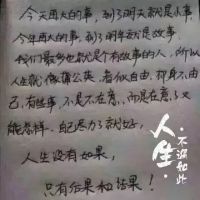 今天再大的事,到了明天就是小事,
今年再大的事,到了明年就是故事,
我们最多也就是个有故事的人,所以
人生就像蒲公英,看似自由,却身不由
己,有些事,不是不在意,而是在意了又
能怎样,自己尽力了就好,
人生没有如果,
只有后果和结果!
人生
不过如此